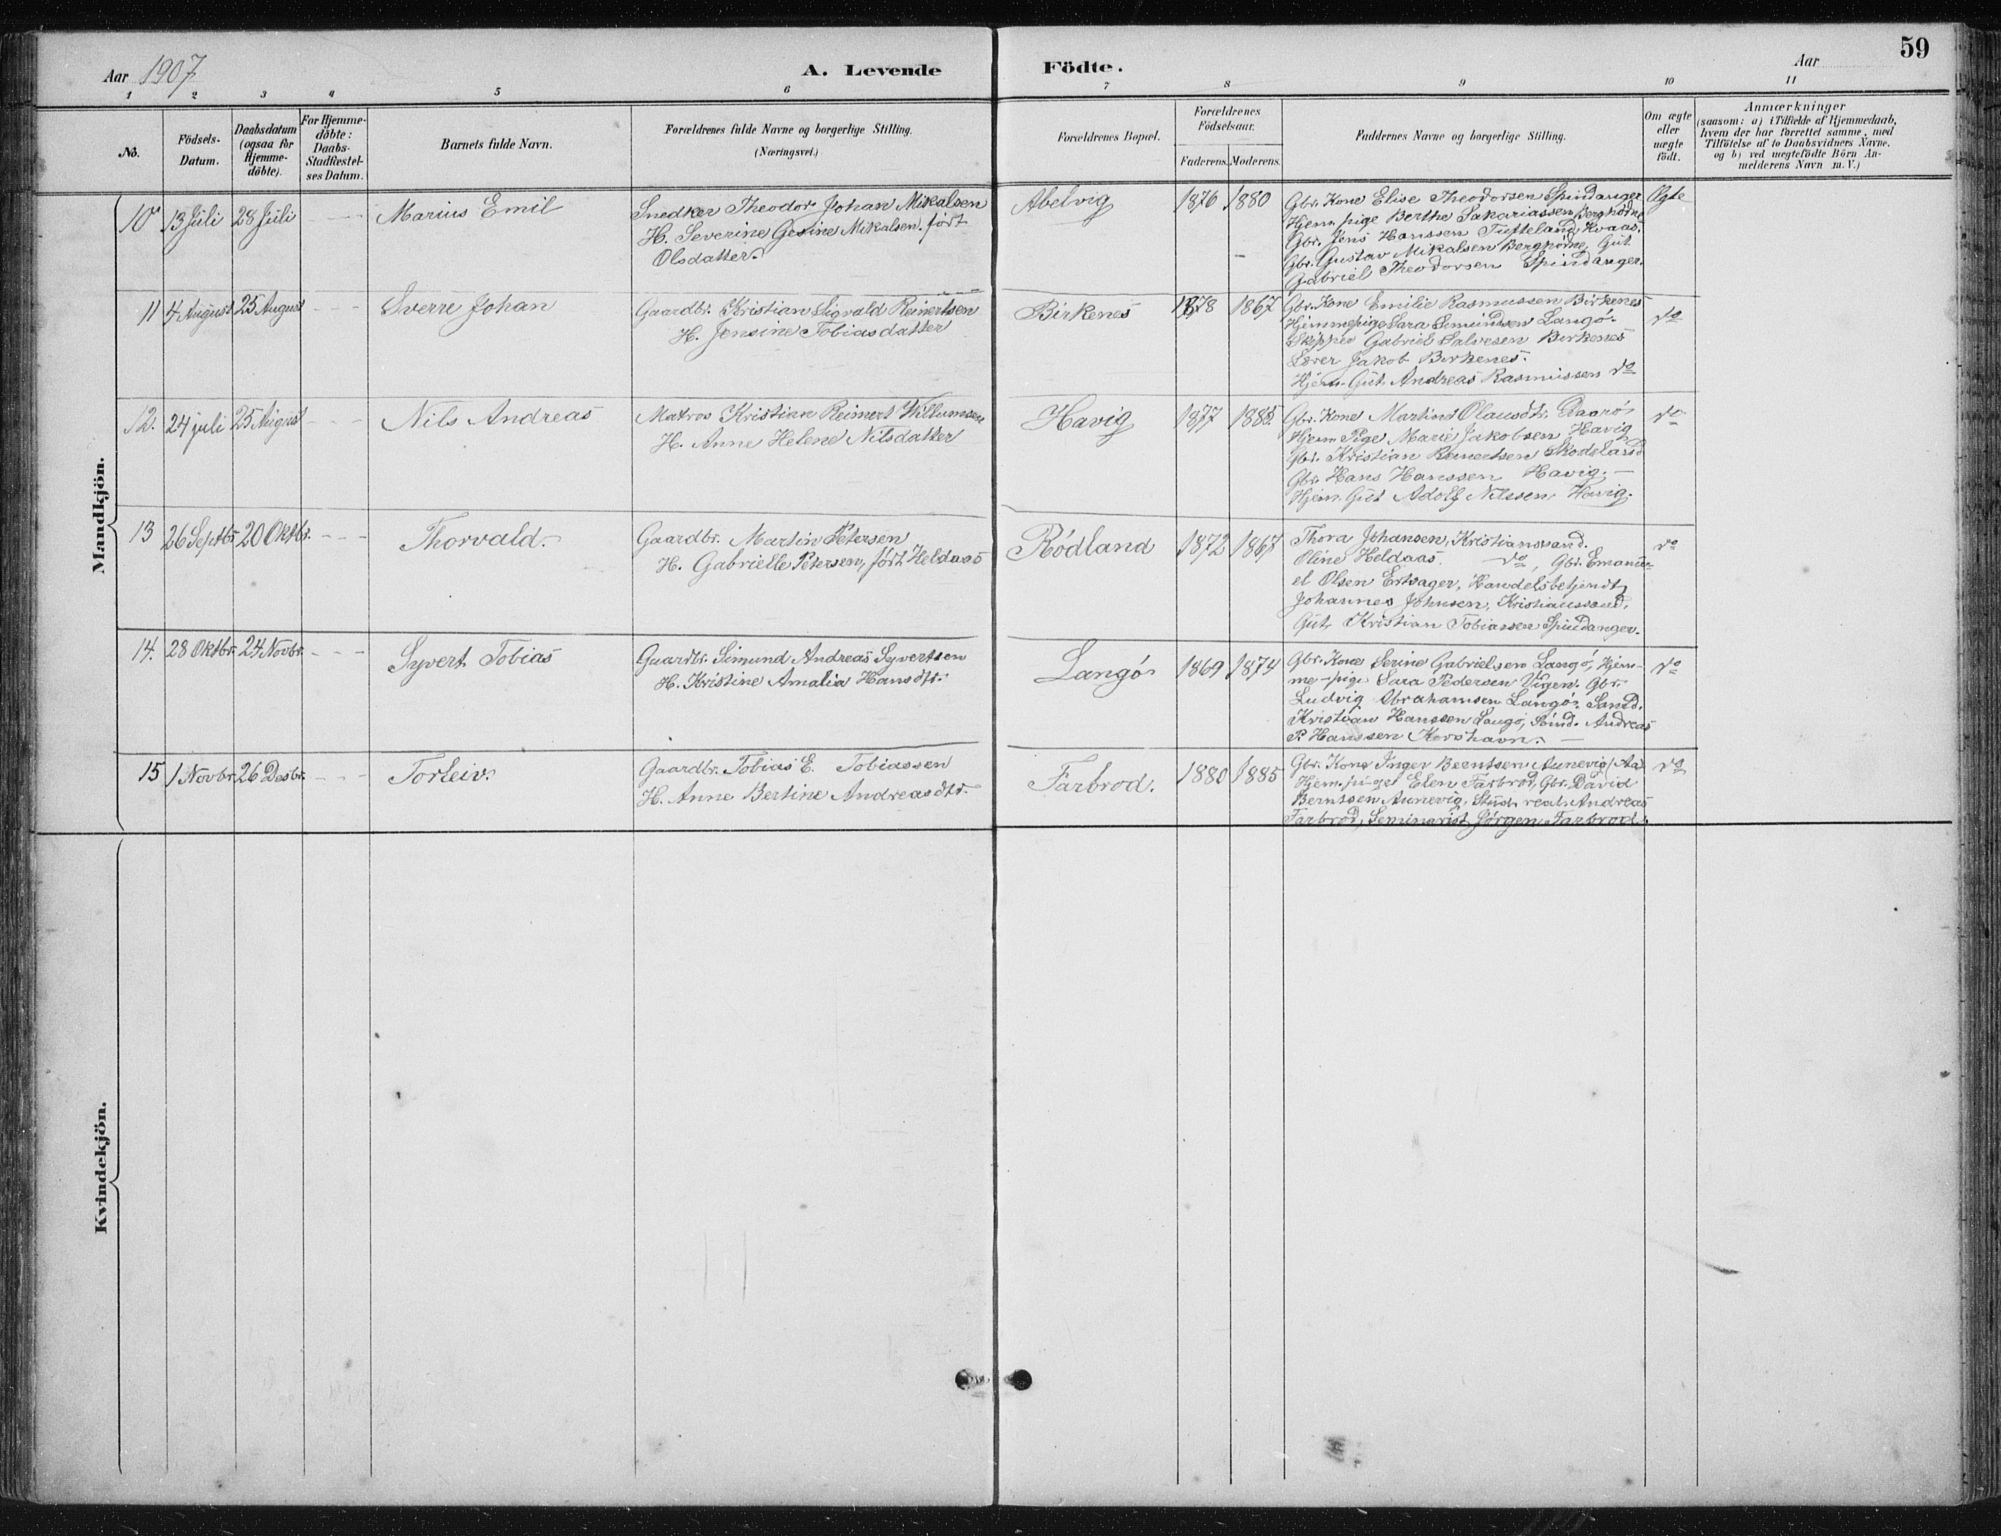 59
Aar 1907
A. Levende Födte.
Aar
1 2 3 4 5 6 7 8 9 10 11
No.
Födsels-
Datum.
Daabsdatum
(ogsaa for
Hjemme-
döbte).
For Hjemme-
döbte:
Daabs-
Stadfæstel-
ses Datum.
Barnets fulde Navn.
Forældrenes fulde Navne og borgerlige Stilling.
(Næringsvei.)
Forældrenes Bopæl.
Forældrenes
Födselsaar.
Faderens. Moderens.
Faddernes Navne og borgerlige Stilling.
Om ægte
eller
uægte
födt.
Anmærkninger
(saasom: a) i Tilfælde af Hjemmedaab,
hvem der har forrettet samme, med
Tilföielse af to Daabsvidners Navne,
og b) ved uægtefödte Börn An-
melderens Navn m. V.)
Mandkjön.
10 13 Juli 28 Juli - - - Marius Emil
Snedker Theodor Johan Mikalsen
H. Severine Gesine Mikalsen, født
Olsdatter.
Abelvig 1876 1880
Gbr. Kone Elise Theodorsen Spindanger
Hjem. pige Berthe Sakariassen
Gbr. Jens Hanssen Tufteland, Kvaas.
Gbr. Gustav Mikalsen Gut
Gabriel Theodorsen Spindanger.
Ægte
11 4 August 25 August - - - Sverre Johan
Gaardbr. Kristian Sigvald Reinertsen
H. Jensine Tobiasdatter
Birkenes 1878 1867
Gbr. Kone Emilie Rasmussen Birkenes
Hjemmepige Sara Simundsen Langø.
Skipper Gabriel Salvesen Birkenes
Lærer Jakob Birkenes.
Hjem. Gut Andreas Rasmussen do
do
12. 24 juli 25 August - - - Nils Andreas
Matros Kristian Reinert Willumsen
H. Anne Helene Nilsdatter
Havig 1877
Gbr. Kone Olausdtr.
Hjem. Pige Marie Jakobsen Havig
Gbr. Kristian Reinertsen Skodeland
Gbr. Hans Hanssen Havig. —
Hjem. Gut Adolf Nilssen Havig.
do
13 26 Septbr. 20 Oktbr. - - - Thorvald.
Gaardbr. Martin Petersen
H. Gabrielle Petersen, født Heldaas
Rødland 1872 1867
Thora Johansen, Kristianssand.
Oline Heldaas do, Gbr. Emanu-
el Olsen Ertsager, Handelsbetjendt
Johannes Johnsen, Kristianssand,
Gut Kristian Tobiassen Spindanger.
do
14. 28 Oktbr. 24 Novbr. - - - Syvert Tobias
Gaardbr. Simund Andreas Syvertsen
H. Kristine Amalia Hansdtr.
Langø 1869 1874
Gbr. Kone Serine Gabrielsen Langø, Hjem-
me-pige Sara Pedersen Vigen. Gbr.
Ludvig Abrahamsen Langø,
Kristian Hanssen Langø, Andreas
P. Hanssen Korshavn. —
do
15 1 Novbr. 26 Desbr. - - - Torleiv
Gaardbr. Tobias E. Tobiassen
H. Anne Bertine Andreasdtr.
Farbrod. 1880 1885
Gbr. Kone Inger Berntsen Aunevig
Hjem. pige Elen Farbrod, Gbr. David
Berntsen Aunevig, Stud. real. Andreas
Farbrod, Seminarist Jørgen Farbrod.
do
Kvindekjön.